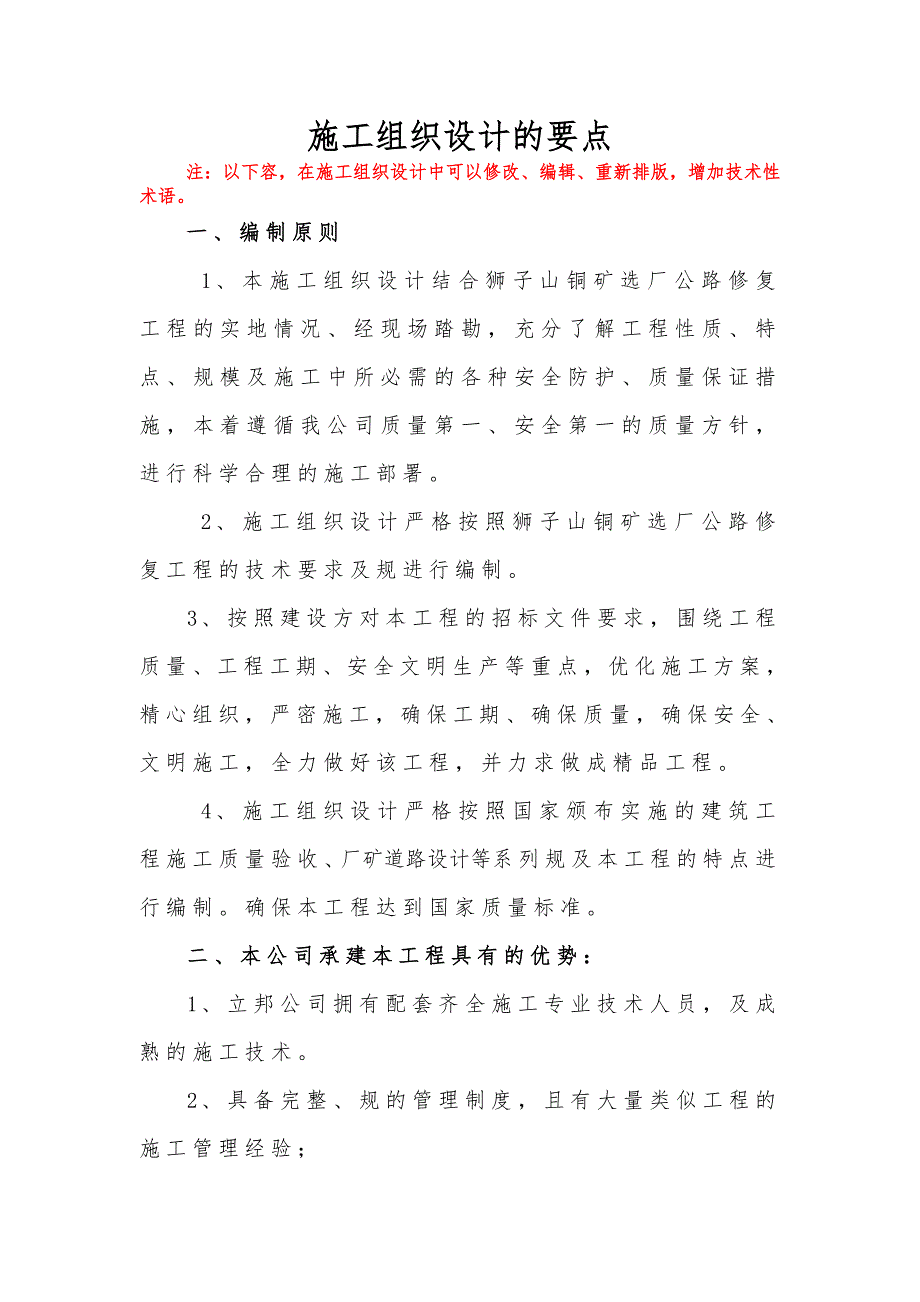 施工组织设计的要点
注：以下容，在施工组织设计中可以修改、编辑、重新排版，增加技术性
术语。
一、编制原则
1、本施工组织设计结合狮子山铜矿选厂公路修复
工程的实地情况、经现场踏勘，充分了解工程性质、特
点、规模及施工中所必需的各种安全防护、质量保证措
施，本着遵循我公司质量第一、安全第一的质量方针，
进行科学合理的施工部署。
2、施工组织设计严格按照狮子山铜矿选厂公路修
复工程的技术要求及规进行编制。
3、按照建设方对本工程的招标文件要求，围绕工程
质量、工程工期、安全文明生产等重点，优化施工方案，
精心组织，严密施工，确保工期、确保质量，确保安全、
文明施工，全力做好该工程，并力求做成精品工程。
4、施工组织设计严格按照国家颁布实施的建筑工
程施工质量验收、厂矿道路设计等系列规及本工程的特点进
行编制。确保本工程达到国家质量标准。
二、本公司承建本工程具有的优势：
1、立邦公司拥有配套齐全施工专业技术人员，及成
熟的施工技术。
2、具备完整、规的管理制度，且有大量类似工程的
施工管理经验；